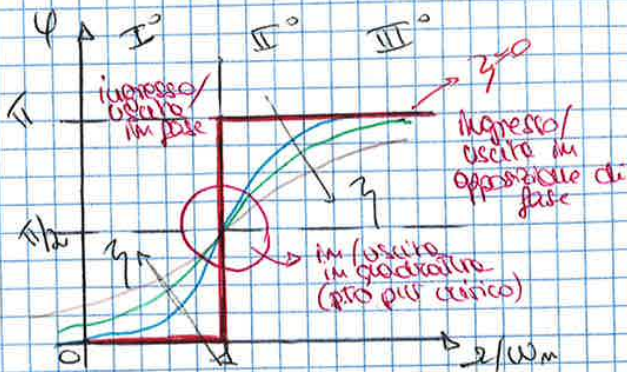 φ
I° II° III°
π
ingresso/
uscita
in fase
ζ=0
ingresso/
uscita in
opposizione di
fase
π/2
ζ
ζ
in/uscita
in quadratura
(pto più critico)
0
1
Ω/ωn